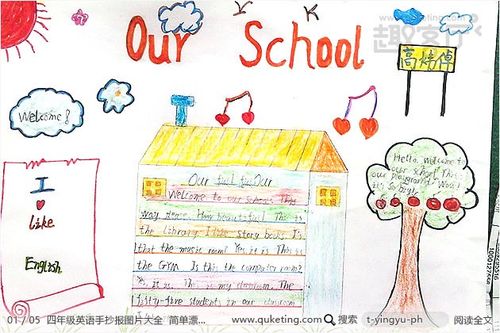 www.quketing.com
Our School
高炜倬
Welcome!
I
Like
English
Hello, welcome to
our school! This
our playground. Wow!
it's so big!
Our
Welcome to our school. This
way please. How beautiful! This is
the library. I like story books. Is
that the music room? Yes, it is. This is
the GYM. Is this the computer room?
it is. This is my classroom. The
fifty-five students in our classroom
01 / 05 四年级英语手抄报图片大全 简单漂... www.quketing.com 搜索 t-yingyu-ph 阅读全文